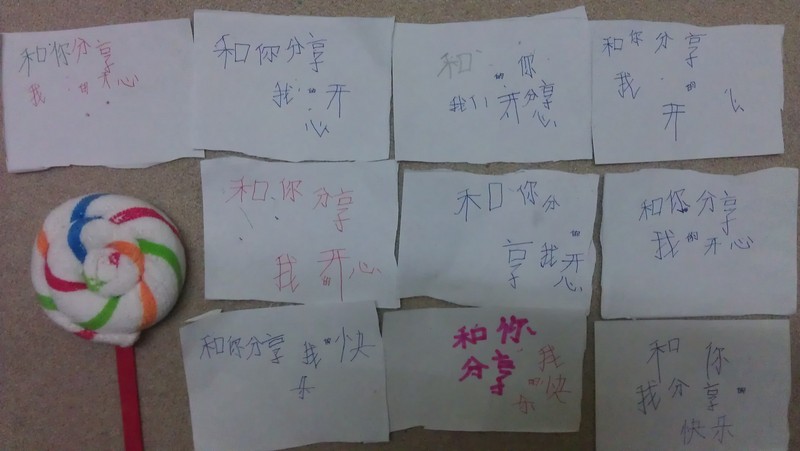 和你分享
我的开心
和你分享
我的开
心
和的你
我们开分享
心
和你分享
我的
开心
和你分享
我的开心
和你分
的
享我开
心
和你分享
我的开心
和你分享我的快
乐
和你我
分享的快
乐
和你
我分享的
快乐